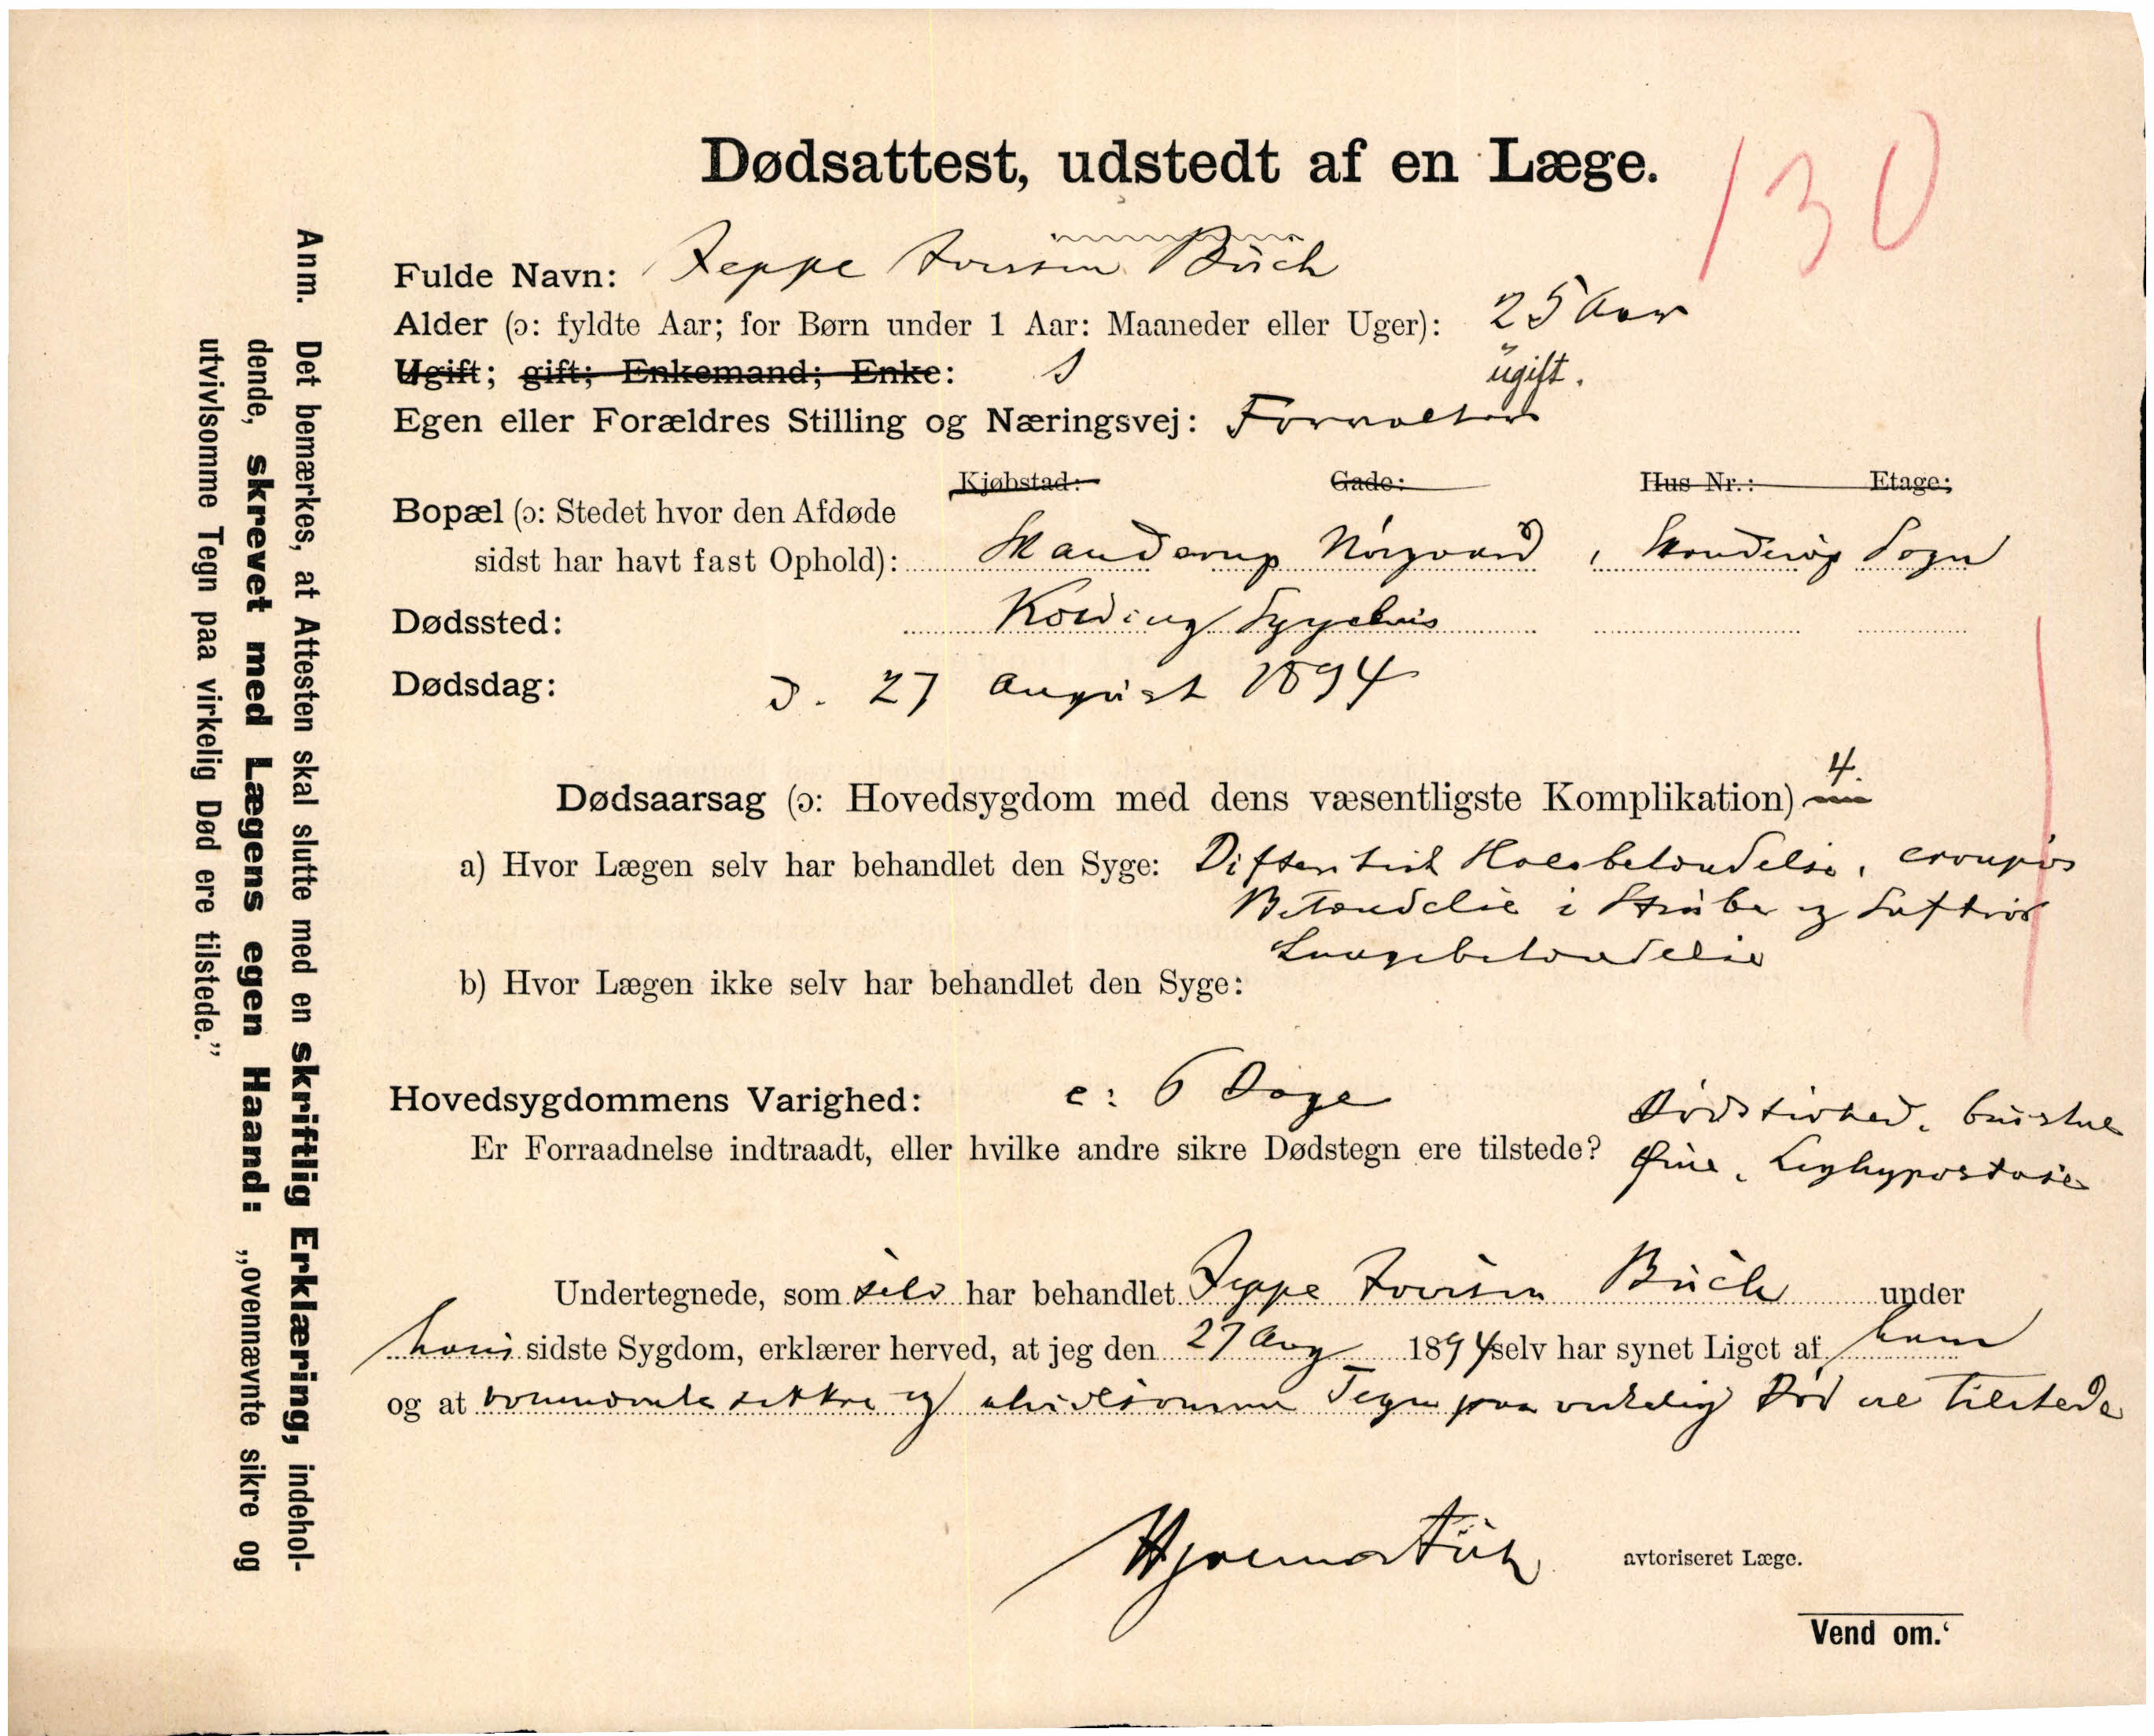 Dødsattest, udstedt af en Læge.
130
Fulde Navn: Jeppe Iversen Buch
Alder (ɔ: fyldte Aar; for Børn under 1 Aar: Maaneder eller Uger): 25 Aar
Ugift; gift; Enkemand; Enke: ugift.
Egen eller Forældres Stilling og Næringsvej: Forvalter
Kjøbstad: Gade: Hus Nr.: Etage;
Bopæl (ɔ: Stedet hvor den Afdøde
sidst har havt fast Ophold): Skanderup Nørgaard, Skanderup Sogn
Dødssted: Kolding Sygehus
Dødsdag: d. 27 August 1894
Dødsaarsag (ɔ: Hovedsygdom med dens væsentligste Komplikation) 4.
a) Hvor Lægen selv har behandlet den Syge: Difteritisk Halsbetændelse, croupøs
Betændelse i Strube og Luftrør
Lungebetændelse
b) Hvor Lægen ikke selv har behandlet den Syge:
Hovedsygdommens Varighed: c: 6 Dage
Er Forraadnelse indtraadt, eller hvilke andre sikre Dødstegn ere tilstede? Dødstivhed, brustne
Øine, Lighypostase
Undertegnede, som selv har behandlet Jeppe Iversen Buch under
hans sidste Sygdom, erklærer herved, at jeg den 27 Aug 1894 selv har synet Liget af ham
og at ovennævnte sikkre og utvivlsomme Tegn paa virkelig Død ere tilstede
avtoriseret Læge.
Vend om.
Anm. Det bemærkes, at Attesten skal slutte med en skriftlig Erklæring, indehol-
dende, skrevet med Lægens egen Haand: „ovennævnte sikre og
utvivlsomme Tegn paa virkelig Død ere tilstede.”